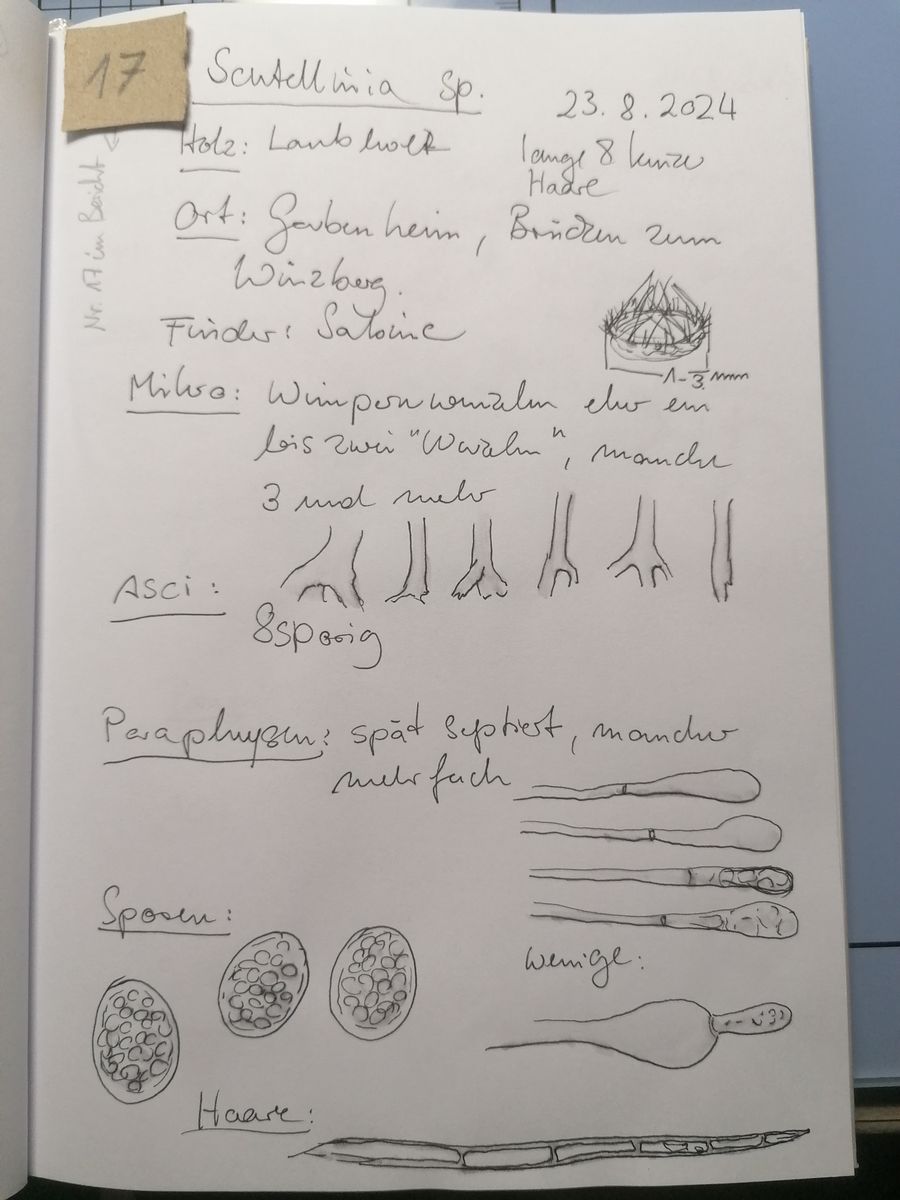 17
Scutellinia Sp.
23.8.2024
Nr. 17 im Bericht
Holz: Laubholz
lange & kurze
Haare
Ort: Gaubenheim, Brücken zum
Winzberg.
Finder: Sabine
1-3 mm
Mikro: Wimpernwurzeln eher ein
bis zwei "Wurzeln", manche
3 und mehr
Asci:
8sporig
Paraphysen: spät septiert, mancher
mehrfach
Sporen:
wenige:
Haare: